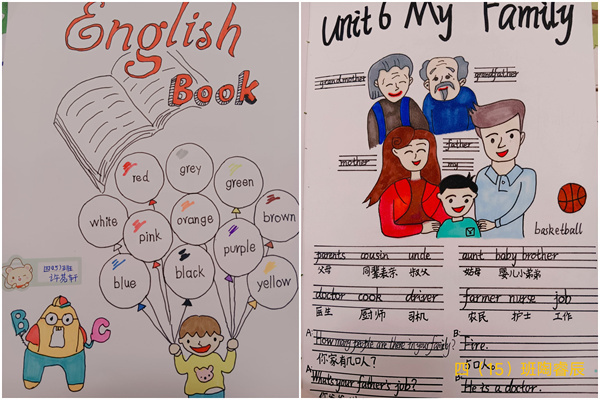 English
Book
red
grey
green
white
pink
orange
brown
purple
blue
black
yellow
B
C
Unit 6 My Family
grandmother
grandfather
father
mother
my
basketball
parents cousin uncle
父母 同辈表亲 叔父
aunt baby brother
姑母 婴儿小弟弟
doctor cook driver
医生 厨师 司机
farmer nurse job
农民 护士 工作
A: How many people are there in your family?
你家有几口人?
B: Five.
5口人。
A: What's your father's job?
He is a doctor.